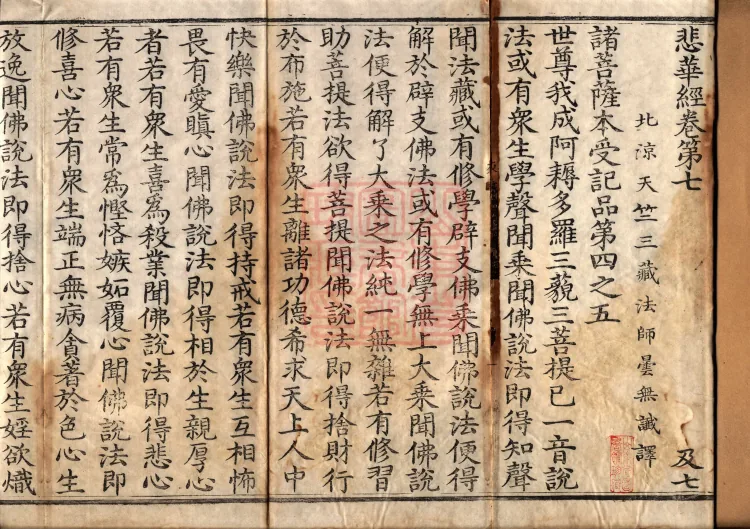 悲華經卷第七
及七
北涼天竺三藏法師曇無讖譯
諸菩薩本受記品第四之五
世尊我成阿耨多羅三藐三菩提已一音說
法或有衆生學聲聞乘聞佛說法即得知聲
聞法藏或有修學辟支佛乘聞佛說法便得
解於辟支佛法或有修學無上大乘聞佛說
法便得解了大乘之法純一無雜若有修習
助菩提法欲得菩提聞佛說法即得捨財行
於布施若有衆生離諸功德希求天上人中
快樂聞佛說法即得持戒若有衆生互相怖
畏有愛瞋心聞佛說法即得相於生親厚心
者若有衆生喜爲殺業聞佛說法即得悲心
若有衆生常爲慳悋嫉妬覆心聞佛說法即
修喜心若有衆生端正無病貪著於色心生
放逸聞佛說法即得捨心若有衆生婬欲熾